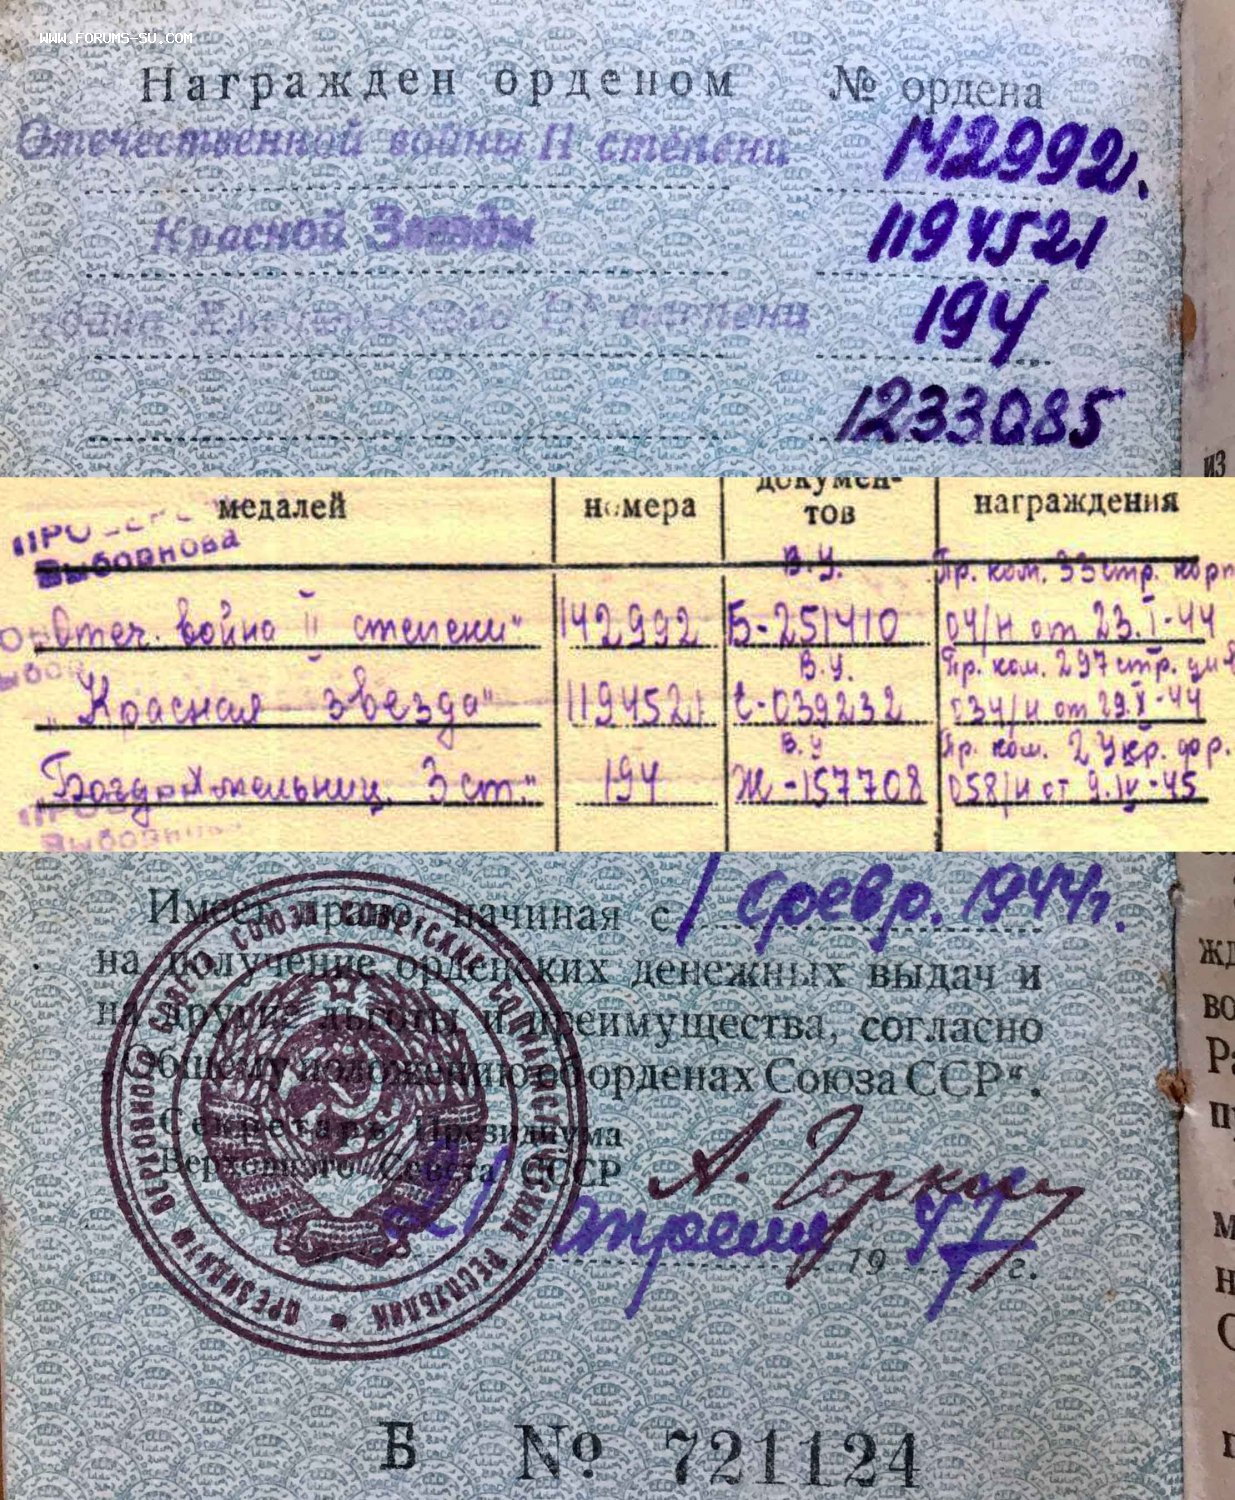 WWW.FORUMS-SU.COM
Награжден орденом № ордена
Отечественной войны II степени 142992.
Красной Звезды 1194521
степени 194
1233085
из
медалей номера докумен-
тов награждения
ПРОВЕРЕ
Выборнова
В.У. Пр. ком. 33 стр. корп
Отеч. война II степени" 142992 Б-251410 04/н от 23.I-44
В.У. Пр. ком. 297 стр. див
"Красная звезда" 1194521 Е-039232 034/н от 29.X-44
В.У Пр. ком. 2 Укр. фр.
"Богд. Хмельниц. 3 ст." 194 Ж-157708 058/н от 9.IV-45
Выборнова
Имеет право, начиная с 1 февр. 1944г.
на получение орденских денежных выдач и
на другие льготы и преимущества, согласно
„Общему положению об орденах Союза ССР“.
Секретарь Президиума
Верховного Совета СССР А. Горкин
21 апреля 1947 г.
ПРЕЗИДИУМ ВЕРХОВНОГО СОВЕТА СОЮЗА СОВЕТСКИХ СОЦИАЛИСТИЧЕСКИХ РЕСПУБЛИК
Б № 721124